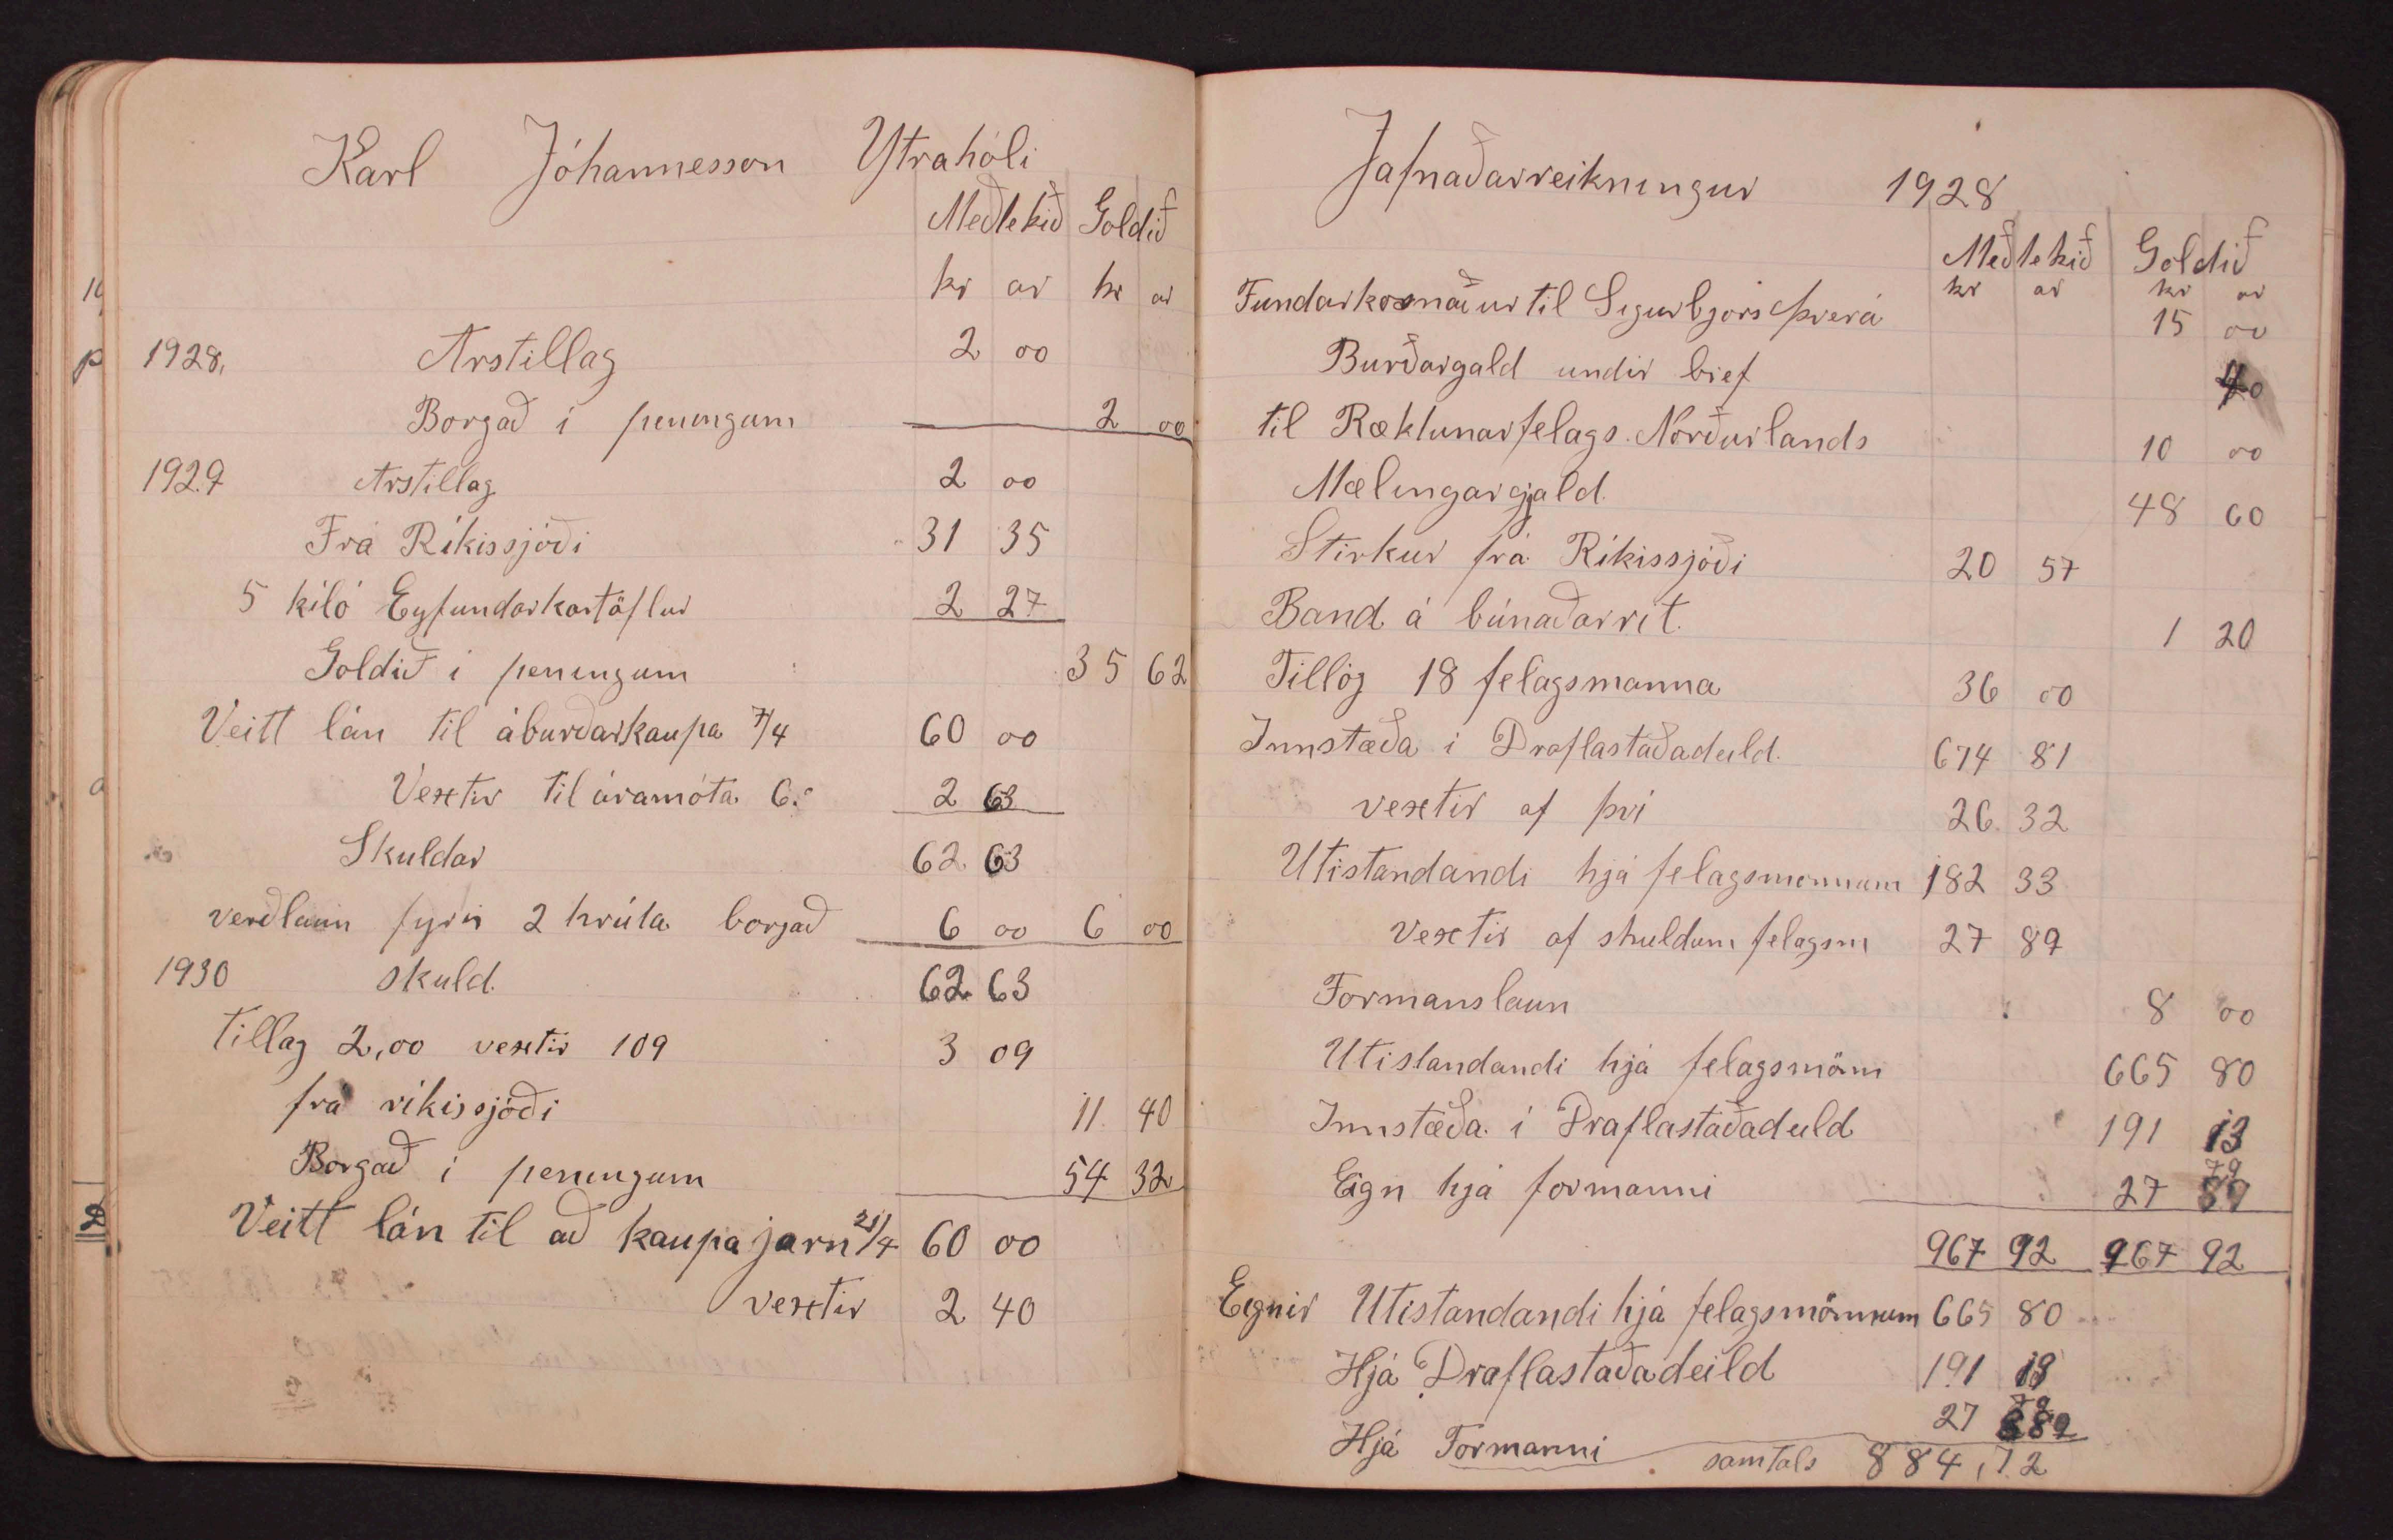 Karl Jóhannesson Ytrahóli
Meðtekið Goldið
kr ar kr ar
1928, Arstillag 2 00
Borgað i peningum 2 00
1929 Arstillag 2 00
Frá Ríkissjóði 31 35
5 kíló Eyfundarkartöflur 2 27
Goldið i peningum 35 62
Veitt lán til áburðarkaupa 7/4 60 00
Vextir til áramóta 6% 2 63
Skuldar 62 63
verðlaun fyrir 2 hrúta borgað 6 00 6 00
1930 skuld. 62 63
Tillag 2,00 vextir 109 3 09
frá ríkissjóði 11 40
Borgað i peningum 54 32
Veitt lán til að kaupa jarn 21/4 60 00
vextir 2 40
Jafnaðarreikningur 1928
Meðtekið Goldið
kr ar kr ar
Fundarkosnaður til Sigurbjörs Þverá 15 00
Burðargald undir bref 40
til Ræktunarfelags Norðurlands 10 00
Mælingargjald. 48 60
Stirkur frá Ríkissjóði 20 57
Band á búnaðarrit. 1 20
Tillög 18 felagsmanna 36 00
Innstæða i Draflastaðadeild. 674 81
vextir af því 26 32
Utistandandi hjá felagsmonnum 182 33
Vextir af skuldum felagsm 27 89
Formanslaun 8 00
Utistandandi hjá felagsmönn 665 80
Innstæða í Draflastaðadeild 191 13
Eign hjá formanni 27 79
967 92 967 92
Egnir Utistandandi hjá felagsmönnum 665 80
Hjá Draflastaðadeild 191 13
Hjá Formanni 27 79
samtals 884,72